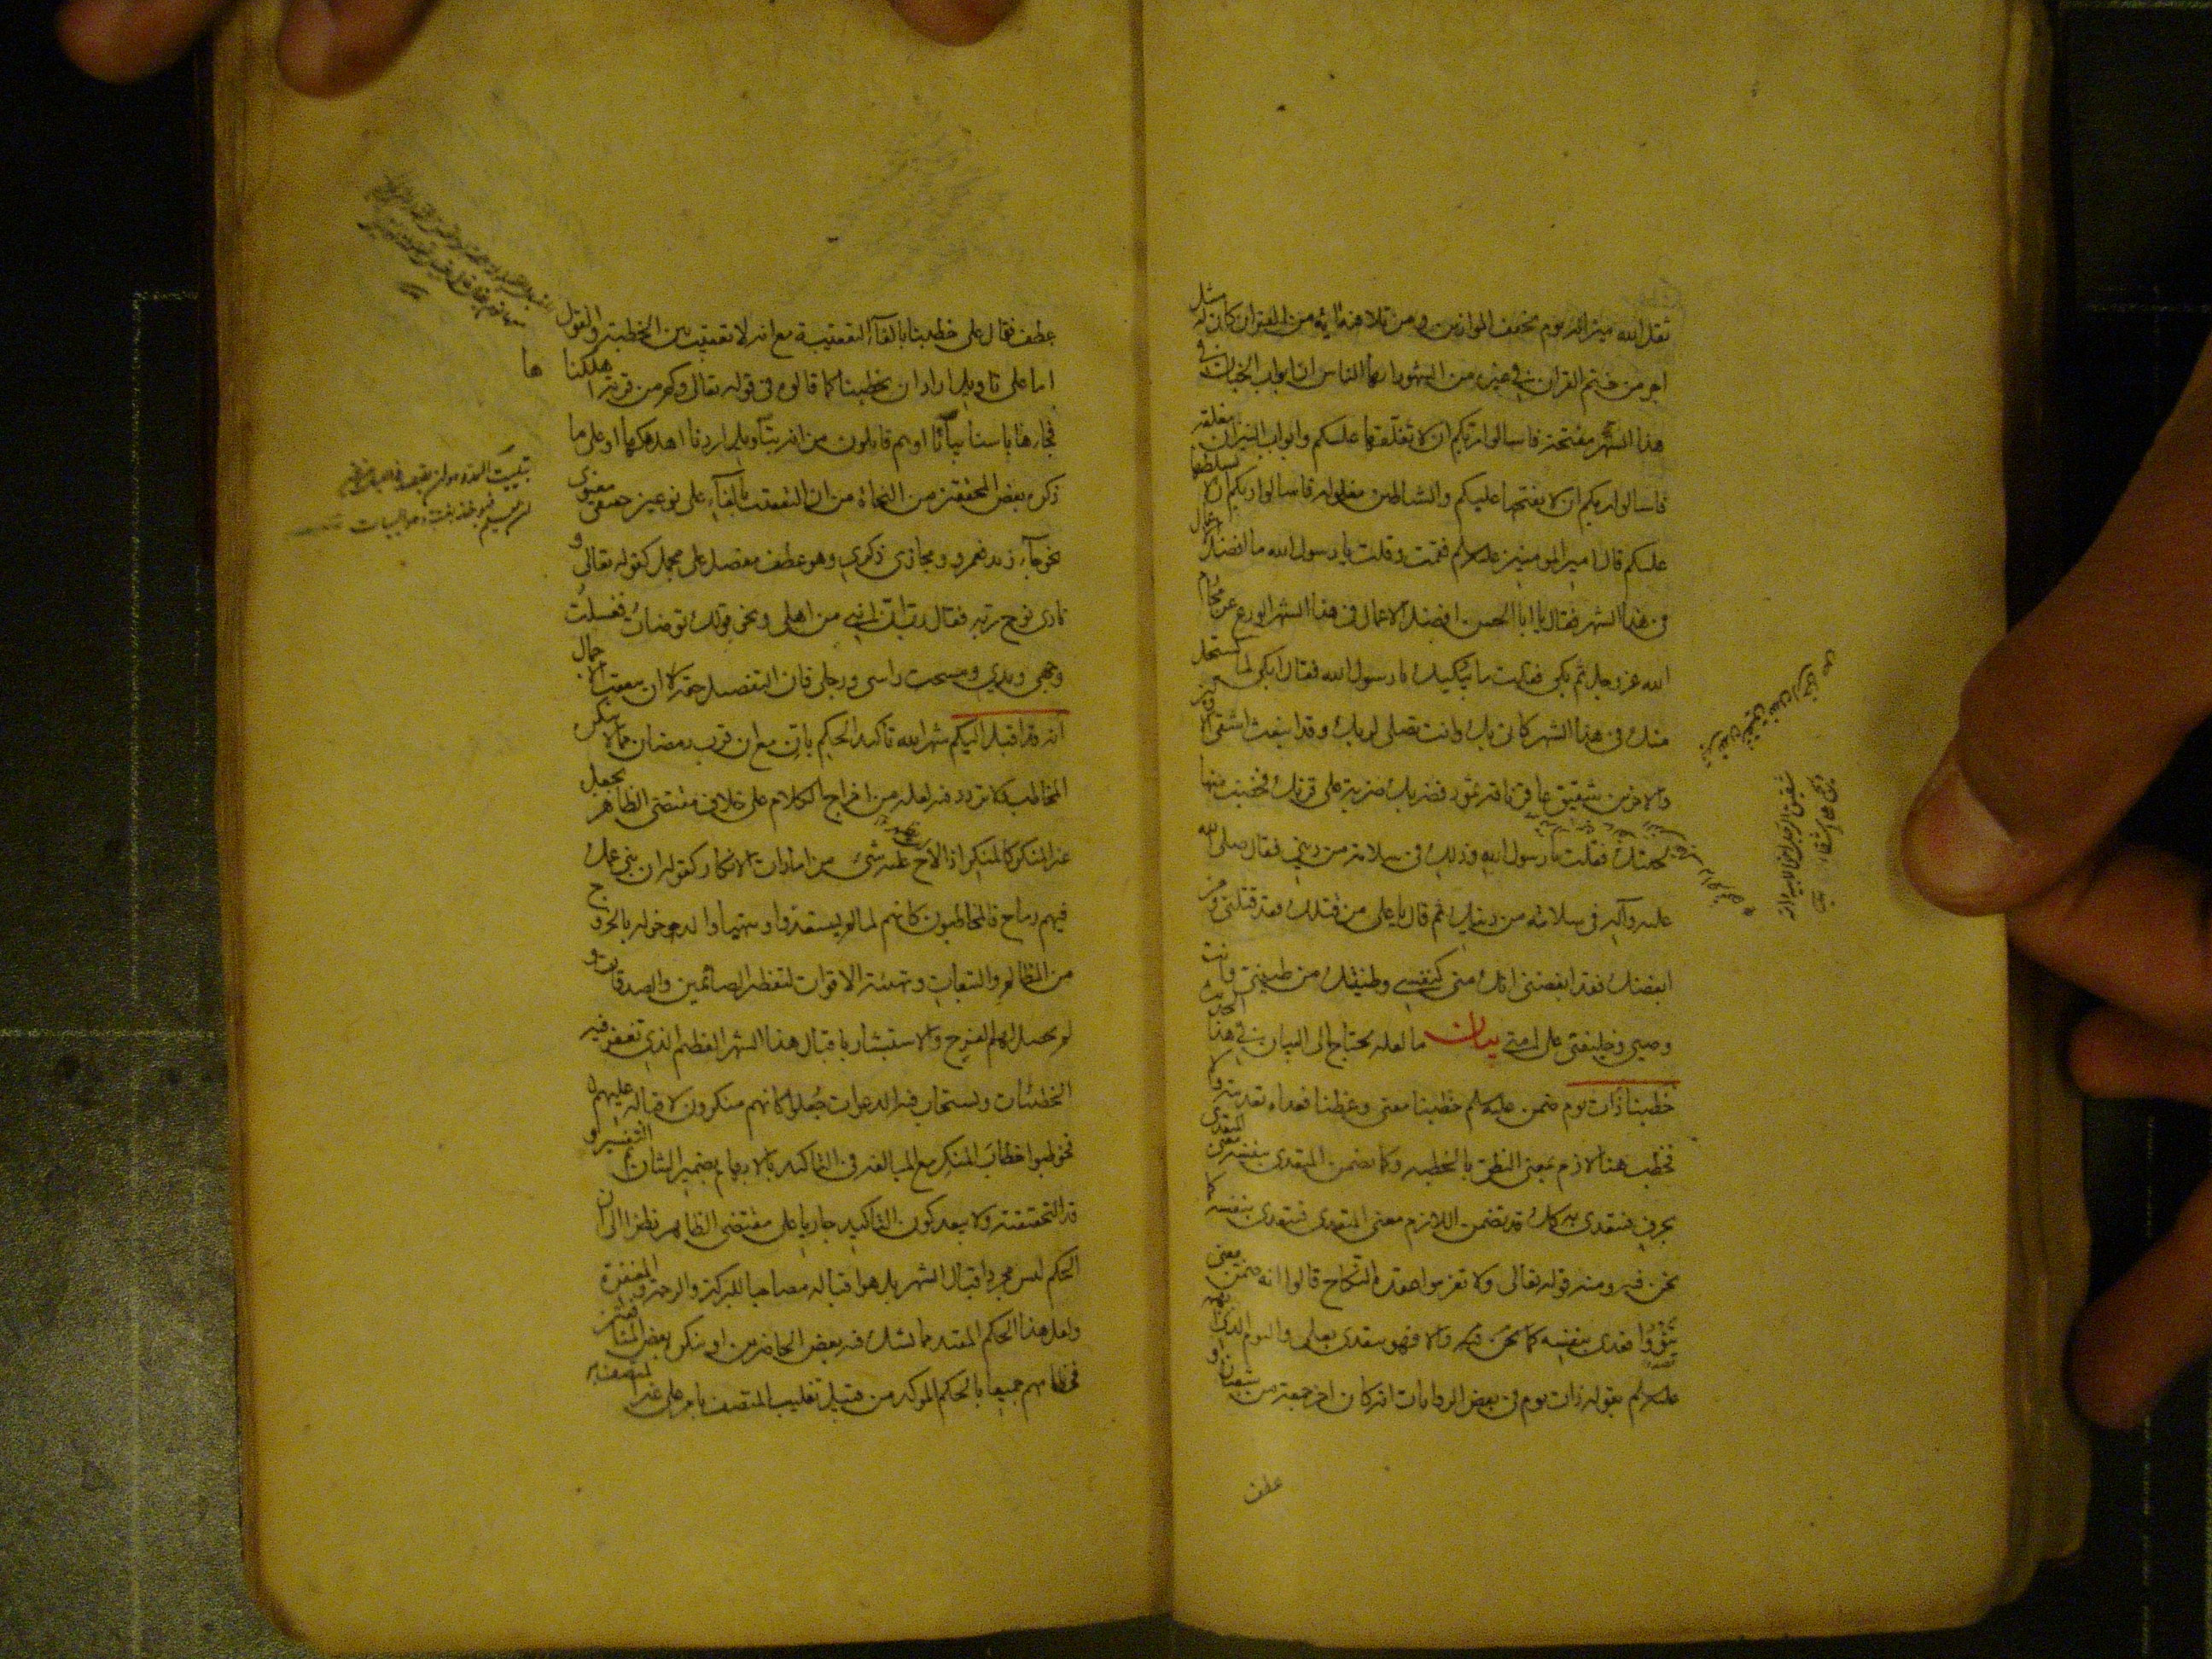 ثقل الله ميزانه يوم تخفف الموازين ومن تلا فيه آية من القرآن كان له مثل
اجر من ختم القرآن في غيره من الشهور ايها الناس ان ابواب الجنان في
هذا الشهر مفتحة فاسالوا ربكم ان لا تغلقها عليكم وابواب النيران مغلقة
فاسالوا ربكم ان لا يفتحها عليكم والشياطين مغلولة فاسالوا ربكم ان لا يسلطها
عليكم قال امير المومنين علیه السلم فقمت وقلت يا رسول الله ما افضل الاعمال
في هذا الشهر فقال يا ابا الحسن افضل الاعمال في هذا الشهر الورع عن محارم
الله عز وجل ثم بكى فقلت ما يبكيك يا رسول الله فقال ابكي لما يستحل
منك في هذا الشهر كاني بك وانت تصلي لربك وقد انبعث اشقى الاولين
والاخرين شقيق عاقر ناقة ثمود فضربك ضربة على قرنك فخضبت منها
لحيتك فقلت يا رسول الله وذلك في سلامة من ديني فقال صلى الله
عليه وآله في سلامة من دينك ثم قال يا علي من قتلك فقد قتلني ومن
ابغضك فقد ابغضني انك مني كنفسي وطينتك من طينتي وانت
وصيي وخليفتي على امتي بيان ما لعله يحتاج الى البيان في هذا الحديث
خطبنا ذات يوم ضمن عليه السلم خطبنا معنى وعظنا فعداه تعديته والا
فخطب هنا لازم بمعنى النطق بالخطبة وكما يضمن المتعدي بنفسه معنى المتعدي
بحرف فيتعدى به كذلك قد يضمن اللازم معنى المتعدي فيتعدى بنفسه كما
نحن فيه ومنه قوله تعالى ولا تعزموا عقدة النكاح قالوا انه ضمن معنى
تنووا فعدي بنفسه كما نحن فيه والا فهو يتعدى بعلى واليوم الذي
عليه السلم بقوله ذات يوم في بعض الروايات انه كان اخر جمعة من شعبان و
عطف
عطف فقال على خطبنا بالفآء التعقيبية مع انه لا تعقيب بين الخطبة والقول
اما على تاويل اراد ان يخطبنا كما قالوه في قوله تعالى وكم من قرية اهلكناها
فجاءها باسنا بياتا او هم قايلون من ان التاويل اردنا اهلاكها او على ما
ذكره بعض المحققين من النحاة من ان التعقيب بالفآء على نوعين حقيقي معنوي
نحو جآء زيد فعمرو ومجازي ذكري وهو عطف مفصل على مجمل كقوله تعالى و
نادى نوح ربه فقال رب ان ابني من اهلي ونحو قولك توضأت فغسلت
وجهي ويدي ومسحت راسي ورجلي فان التفصيل حقه ان يعقب الاجمال
انه قد اقبل اليكم شهر الله تاكيد الحكم بان مع ان قرب رمضان مما لا ينكره
المخاطب ولا تردد فيه لعله من اخراج الكلام على خلاف مقتضى الظاهر بجعل
غير المنكر كالمنكر اذا لاح عليه شئ من امارات الانكار كقوله ان بني عمك
فيهم رماح فالمخاطبون كانهم لما لم يستعدوا ويتهياوا لدخوله بالخروج
من المظالم والتبعات وتهيئة الاقوات لتفطير الصائمين والصدقات و
لم يحصل لهم الفرح والاستبشار باقبال هذا الشهر العظيم الذي تغفر فيه
الخطيئات ويستجاب فيه الدعوات جُعلوا كانهم منكرون لاقباله عليهم
فخوطبوا خطاب المنكر مع المبالغة في التاكيد بالابهام بضمير الشان ثم التفسير و
قد التحقيقية ولا يبعد كون التاكيد جاريا على مقتضى الظاهر نظرا الى ان
الحكم ليس مجرد اقبال الشهر بل هو اقباله مصاحبا للبركة والرحمة والمغفرة
ولعل هذا الحكم المقيد مما يشك فيه بعض الحاضرين او ينكره بعض المنافقين
فخاطبهم جميعا بالحكم الموكد من قبيل تغليب المتصف بامر على غير المتصف به